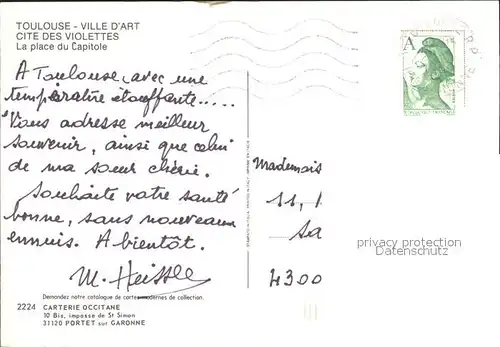 TOULOUSE - VILLE D'ART
CITE DES VIOLETTES
La place du Capitole
A Toulouse, avec une
température étouffante.....
Vous adresse meilleur
souvenir, ainsi que celui
de ma soeur chérie.
Souhaite votre santé
bonne, sans nouveaux
ennuis. A bientôt.
M. Heissle
Demandez notre catalogue de cartes modernes de collection.
2224 CARTERIE OCCITANE
10 Bis, impasse de St Simon
31120 PORTET sur GARONNE
A
Mademois
11, 1
Sa
4300
privacy protection
www.ansichtskartenversand.com